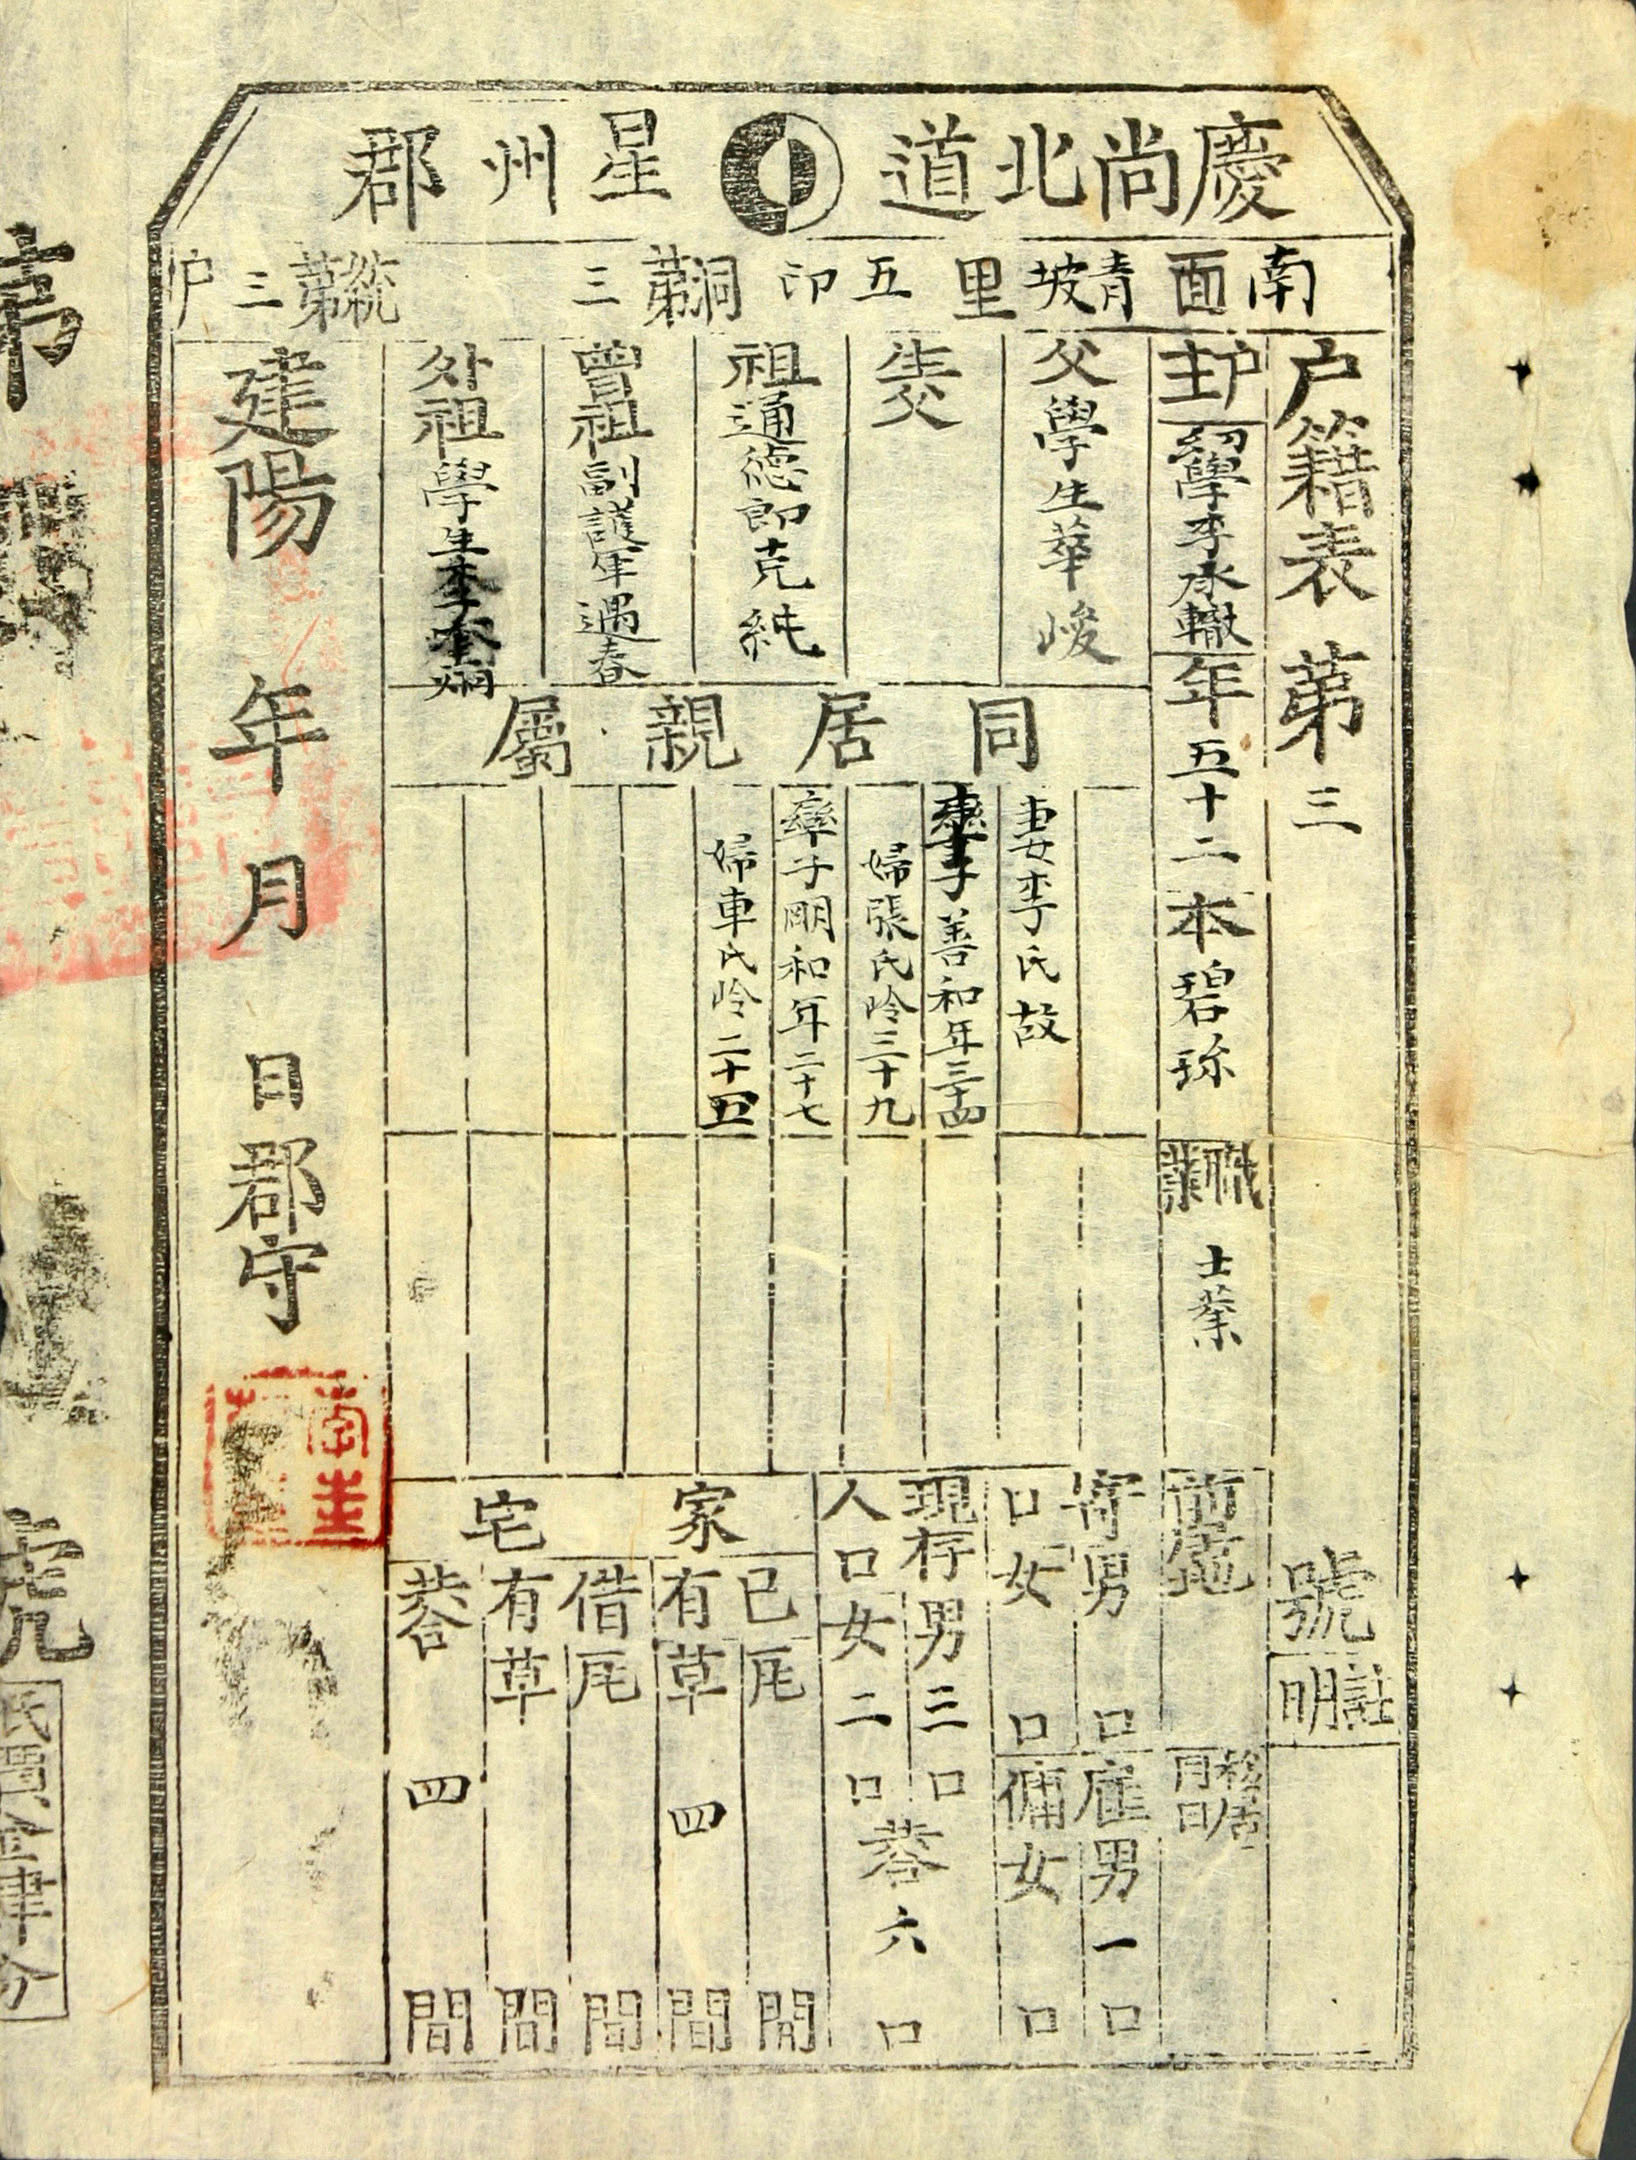 慶尚北道 星州郡
南面 青坡里 五印洞 第三統 第三戶
戶籍表 第三號
註明
戶主 幼學李承轍 年五十二 本碧珍 職業 士業
前居地
移居月日
父 學生華峻
生父
祖 通德郎克純
曾祖 副護軍遇春
外祖 學生李
同居親屬
妻李氏故
率子善和年三十四
婦張氏齡三十九
率子剛和年二十七
婦車氏齡二十五
寄口 男 口
女 口
雇傭 男一口
女 口
現存人口 男三口
女二口
共合六口
家宅
已有 瓦 間
草四間
借有 瓦 間
草 間
共合四間
建陽 年 月 日 郡守
號